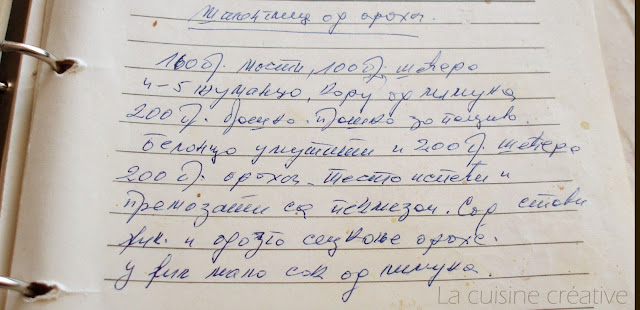 Шапитлиц од ораха.
160 гр. масти, 100 гр. шећера
4-5 жуманца, кору од лимуна
200 гр. брашна. прашка за пециво.
Беланца умутити и 200 гр. шећера
200 гр. ораха. Тесто испећи и
премазати са пекмезом. Сад стави
фил. и одозго сецкане орахе.
У фил мало сок од лимуна.
La cuisine créative